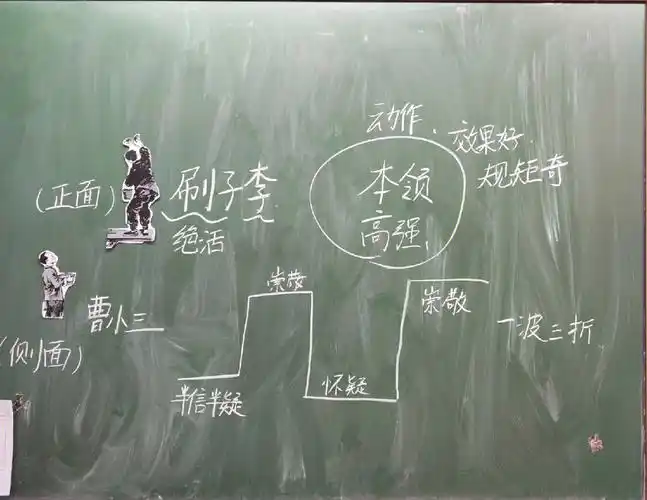 动作、效果好、
规矩奇
(正面) 刷子李
绝活
本领
高强
曹小三
(侧面)
半信半疑
崇敬
怀疑
崇敬
一波三折